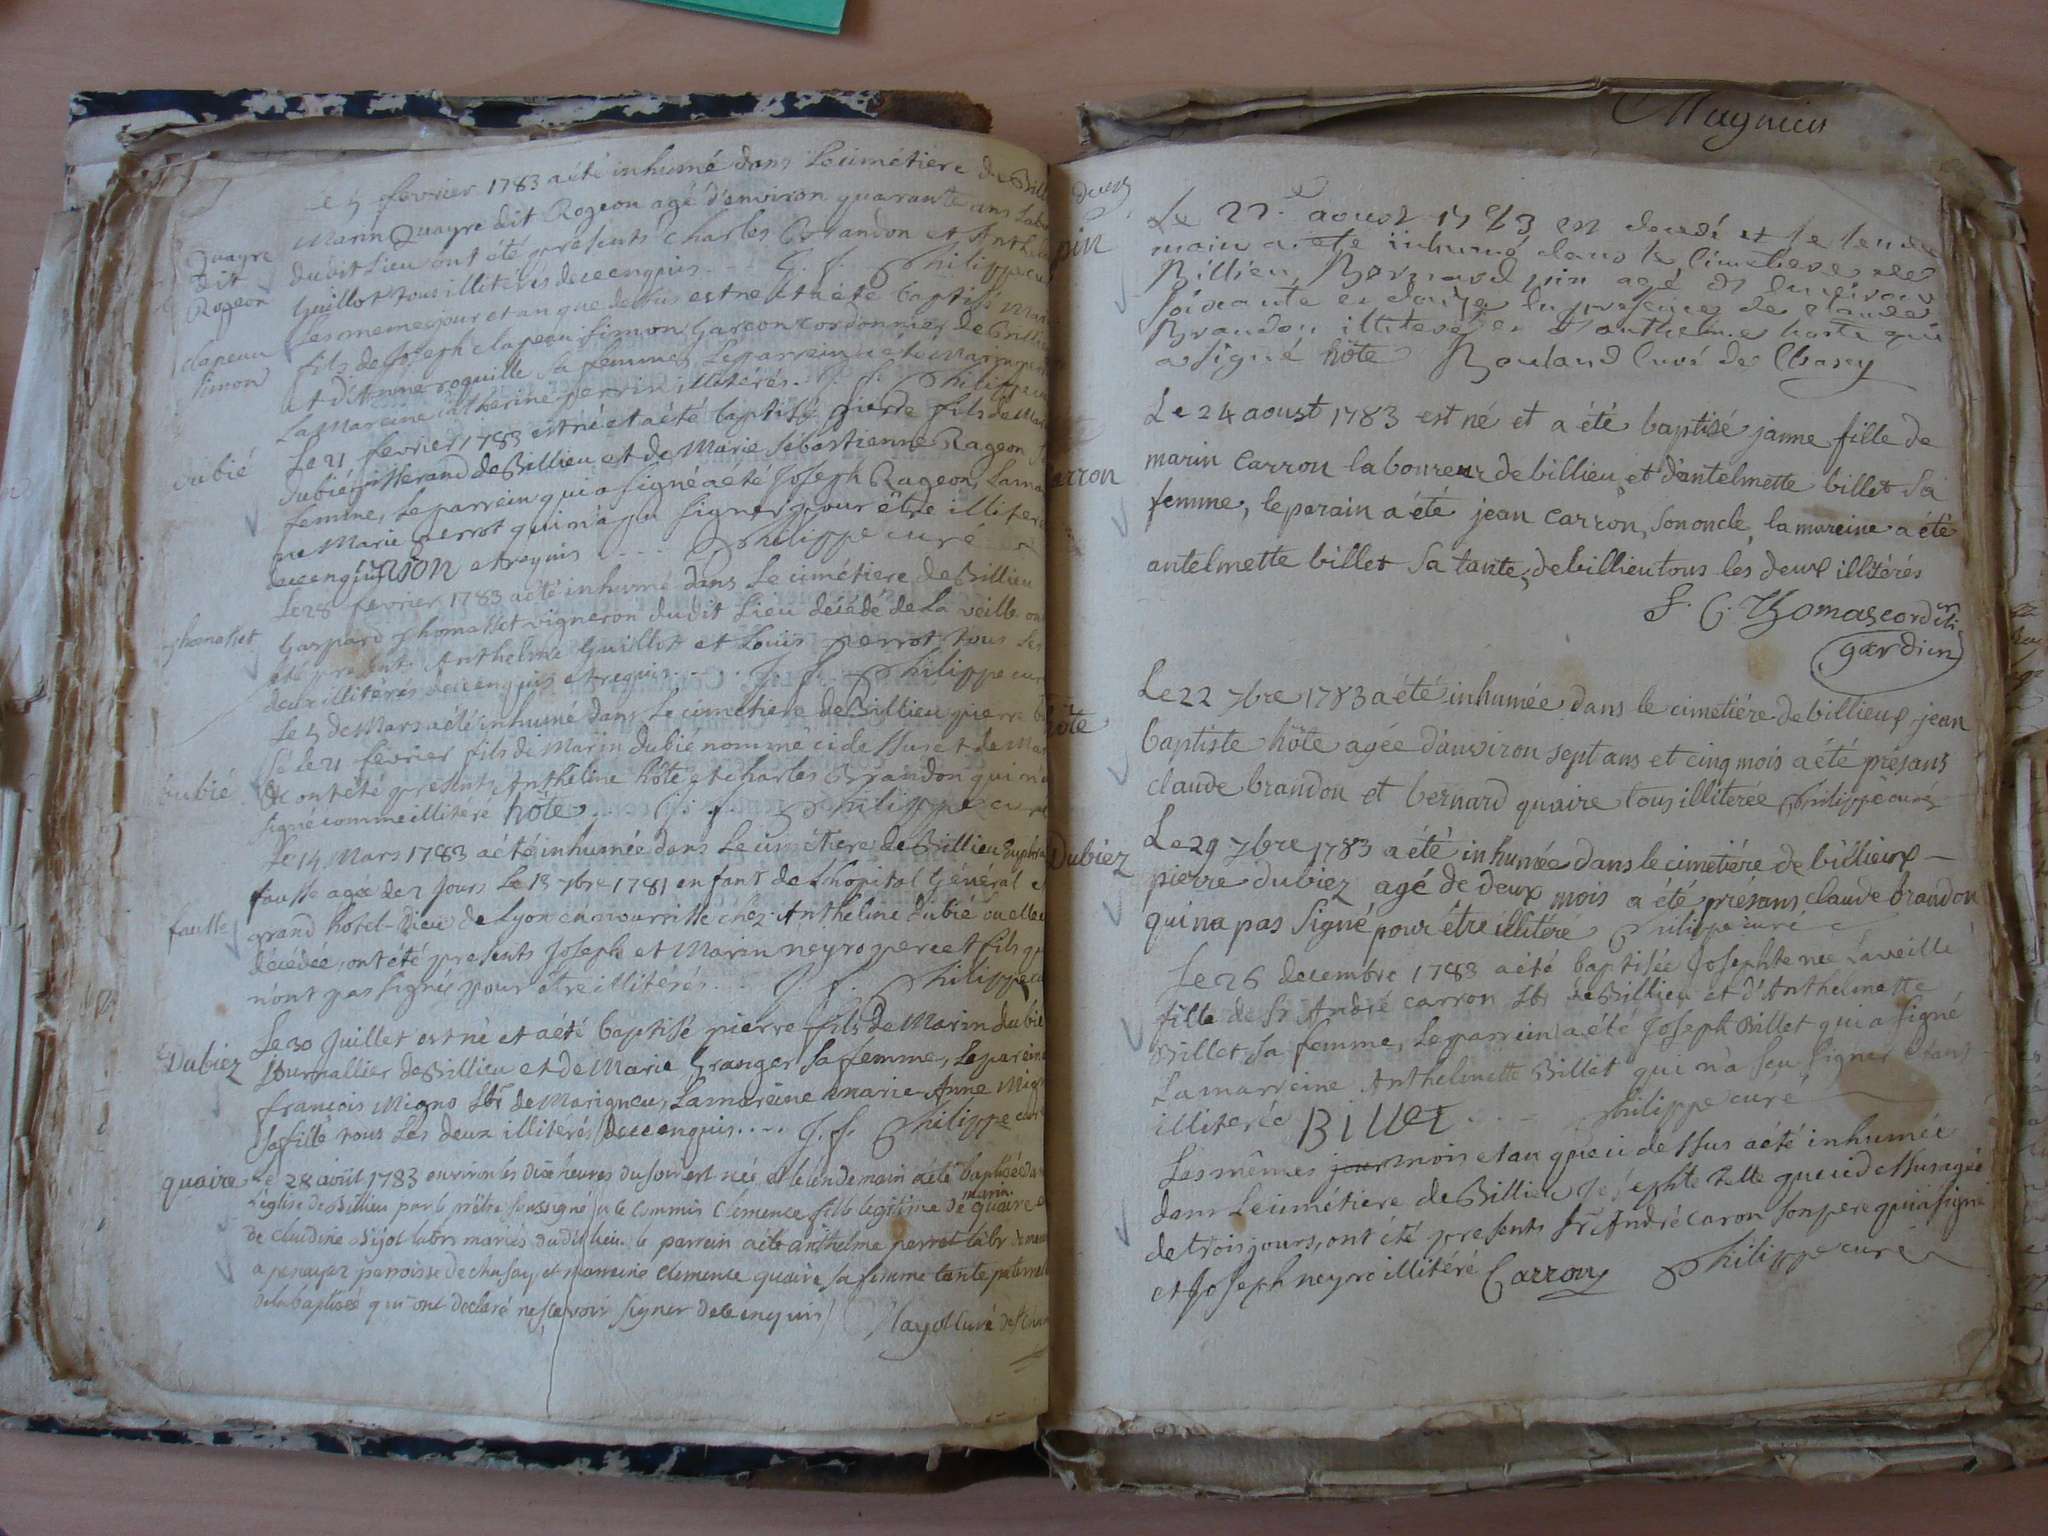 Le 5 fevrier 1783 a été inhumé dans Le cimétiere de Bill
Quayre
dit
Rogeon
Marin Quayre dit Rogeon agé d'environ quarante ans Labo
dudit Lieu ont été presents Charles Brandon et Anthel
Guillot tous illitérés de ce enquis - - - J. f. Philippe cu
clapeau
simon
Les meme jour et an que dessus est né et a été baptisé
fils de Joseph clapeau simon Garcon Cordonnier de Billi
et d'Anne roquille sa femme, Le parrein a été Marin
La Mareine catherine perrin illitérés. J. f. Philippe cu
dubié
Le 21 fevrier 1783 est né et a été baptisé pierre fils de Mar
dubié de Billieu et de Marie Sébastienne Rageon
femme, Le parrein qui a signé a été Joseph Rageon, La ma
ne Marie perrot qui n'a pu signer pour être illiteré
de ce enquis et requis - - - - Philippe curé
thomasset
Le 28 fevrier 1783 a été inhumé dans Le cimétiere de Billieu
Gaspard thomasset vigneron dudit Lieu décédé de La veille ont
été present Anthelme Guillot et Louis perrot tous Les
deux illitérés de ce enquis et requis - - . J. f. Philippe cur
dubié
Le 5 de Mars a été inhumé dans Le cimétiere de Billieu pierre
Le 21 fevrier fils de Marin dubié nommé ci dessus et de Mar
ont été presents Anthelme hôte et charles Brandon qui n'a
signé comme illitéré hôte . . J. f. Philippe curé
fausse
Le 14 Mars 1783 a été inhumée dans Le cimétiere de Billieu
fausse agée de 2 Jours Le 13 7bre 1781 enfant de L'hopital Général
grand hôtel-Dieu de Lyon en nourrisse chez Anthelme dubié ou elle
décédée, ont été presents Joseph et Marin neyro pere et fils q
n'ont pas signés pour être illitérés . . . J. f. Philippe cu
Dubiez
Le 30 Juillet est né et a été baptisé pierre fils de Marin dubié
Journallier de Billieu et de Marie Granger sa femme, Le pareine
françois Migno Lbr de Marigneu, La mareine marie-Anne Mign
sa fille tous Les deux illiterés de ce enquis . . . . J. f. Philippe curé
quaire
Le 28 août 1783 environ les dix heures du soir est née et le lendemain a été baptisée dan
L'église de Billieu par le prêtre soussigné a ce commis Clémence fille légitime de marin quaire et
de Claudine labrs mariés dudit lieu. le parrein a été anthelme perret labr
a penayez parroisse de chasay et marreine Clemence quaire sa femme tante paternel
de la baptisée qui ont declaré ne sçavoir signer de ce enquis
Magnieu
deces
pin
Le 22e aoust 1783 est decedé et le lende
main a été inhumé dans le Cimetiere de
Billieu Bernard pin agé de d'environ
soixante et douze en presence de claude
Brandon illiteré et d'anthelme hoste qui
a signé hôte Rouland Curé de Chasey
carron
Le 24 aoust 1783 est né et a été baptisé janne fille de
marin Carron laboureur de billieu, et d'antelmette billet sa
femme, le parain a été jean Carron, son oncle, la mareine a été
antelmette billet sa tante, de billieu tous les deux illitérés
f. C. Thomas cordeli
gardien
hôte
Le 22 7bre 1783 a été inhumée dans le cimetiére de billieux jean
baptiste hôte agée d'anviron sept ans et cinq mois a été présans
claude brandon et bernard quaire tous illiterée Philippe curé
Dubiez
Le 29 7bre 1783 a été inhumée dans le cimetiére de billieux -
pierre dubiez agé de deux mois a été présans claude brandon
qui na pas signé pour être illitéré Philippe curé
Le 26 decembre 1783 a été baptisée Josephte née La veille
fille de sr André carron Lbr de Billieu et d'Anthelmette
Billet sa femme, Le parrein a été Joseph Billet qui a signé
La marreine Anthelmette Billet qui n'a seu signer étant
illiterée BILLET - - - Philippe curé
Les mêmes jour mois et an que ci dessus a été inhumée
dans Le cimétiere de Billieu Josephte telle que ci dessus agée
de trois jours, ont été presents sr André caron son pere qui a signé
et Joseph neyro illitéré Carron Philippe curé